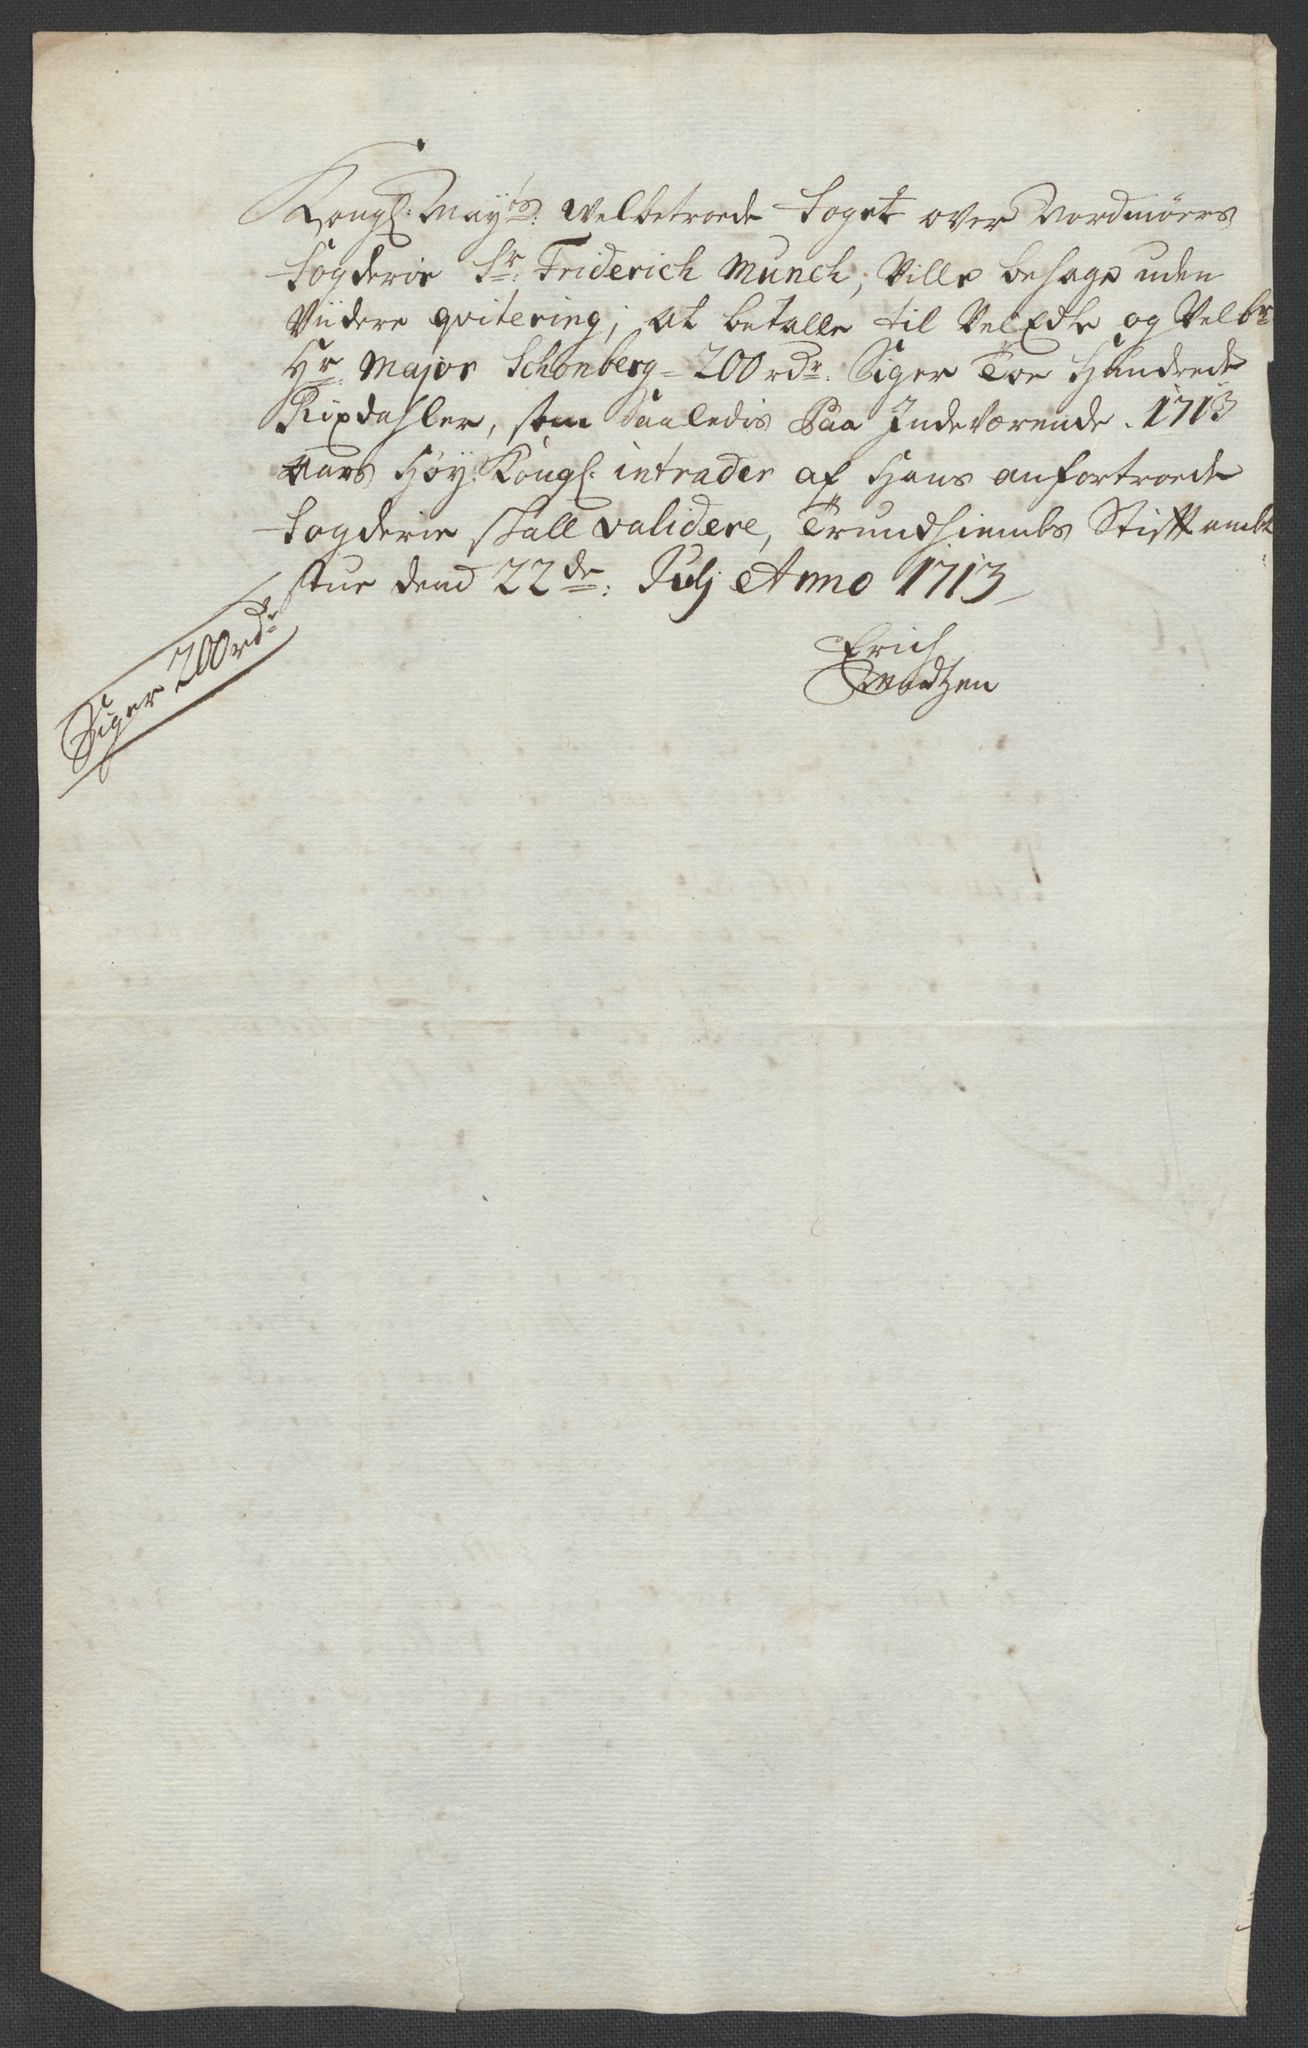 Kongl: May:ts: Welbetroede fogete over Nordmøers
fogderie Sr: Friderich Munch, Ville behage uden
Viidere qvitering, at betalle til VelEdle og Velbr
Hr: Major Schønberg = 200 rdr: Siger Toe Hundrede
Rixdahler, som saaledis Paa Indeværende 1713
Aars Høy: Kongl: intrader af Hans anfortroede
fogderie skall validere, Trundhiembs Stiftambt
stue dend 22de: Julj Anno 1713
Erich
Madtzen
Siger 200 rdr